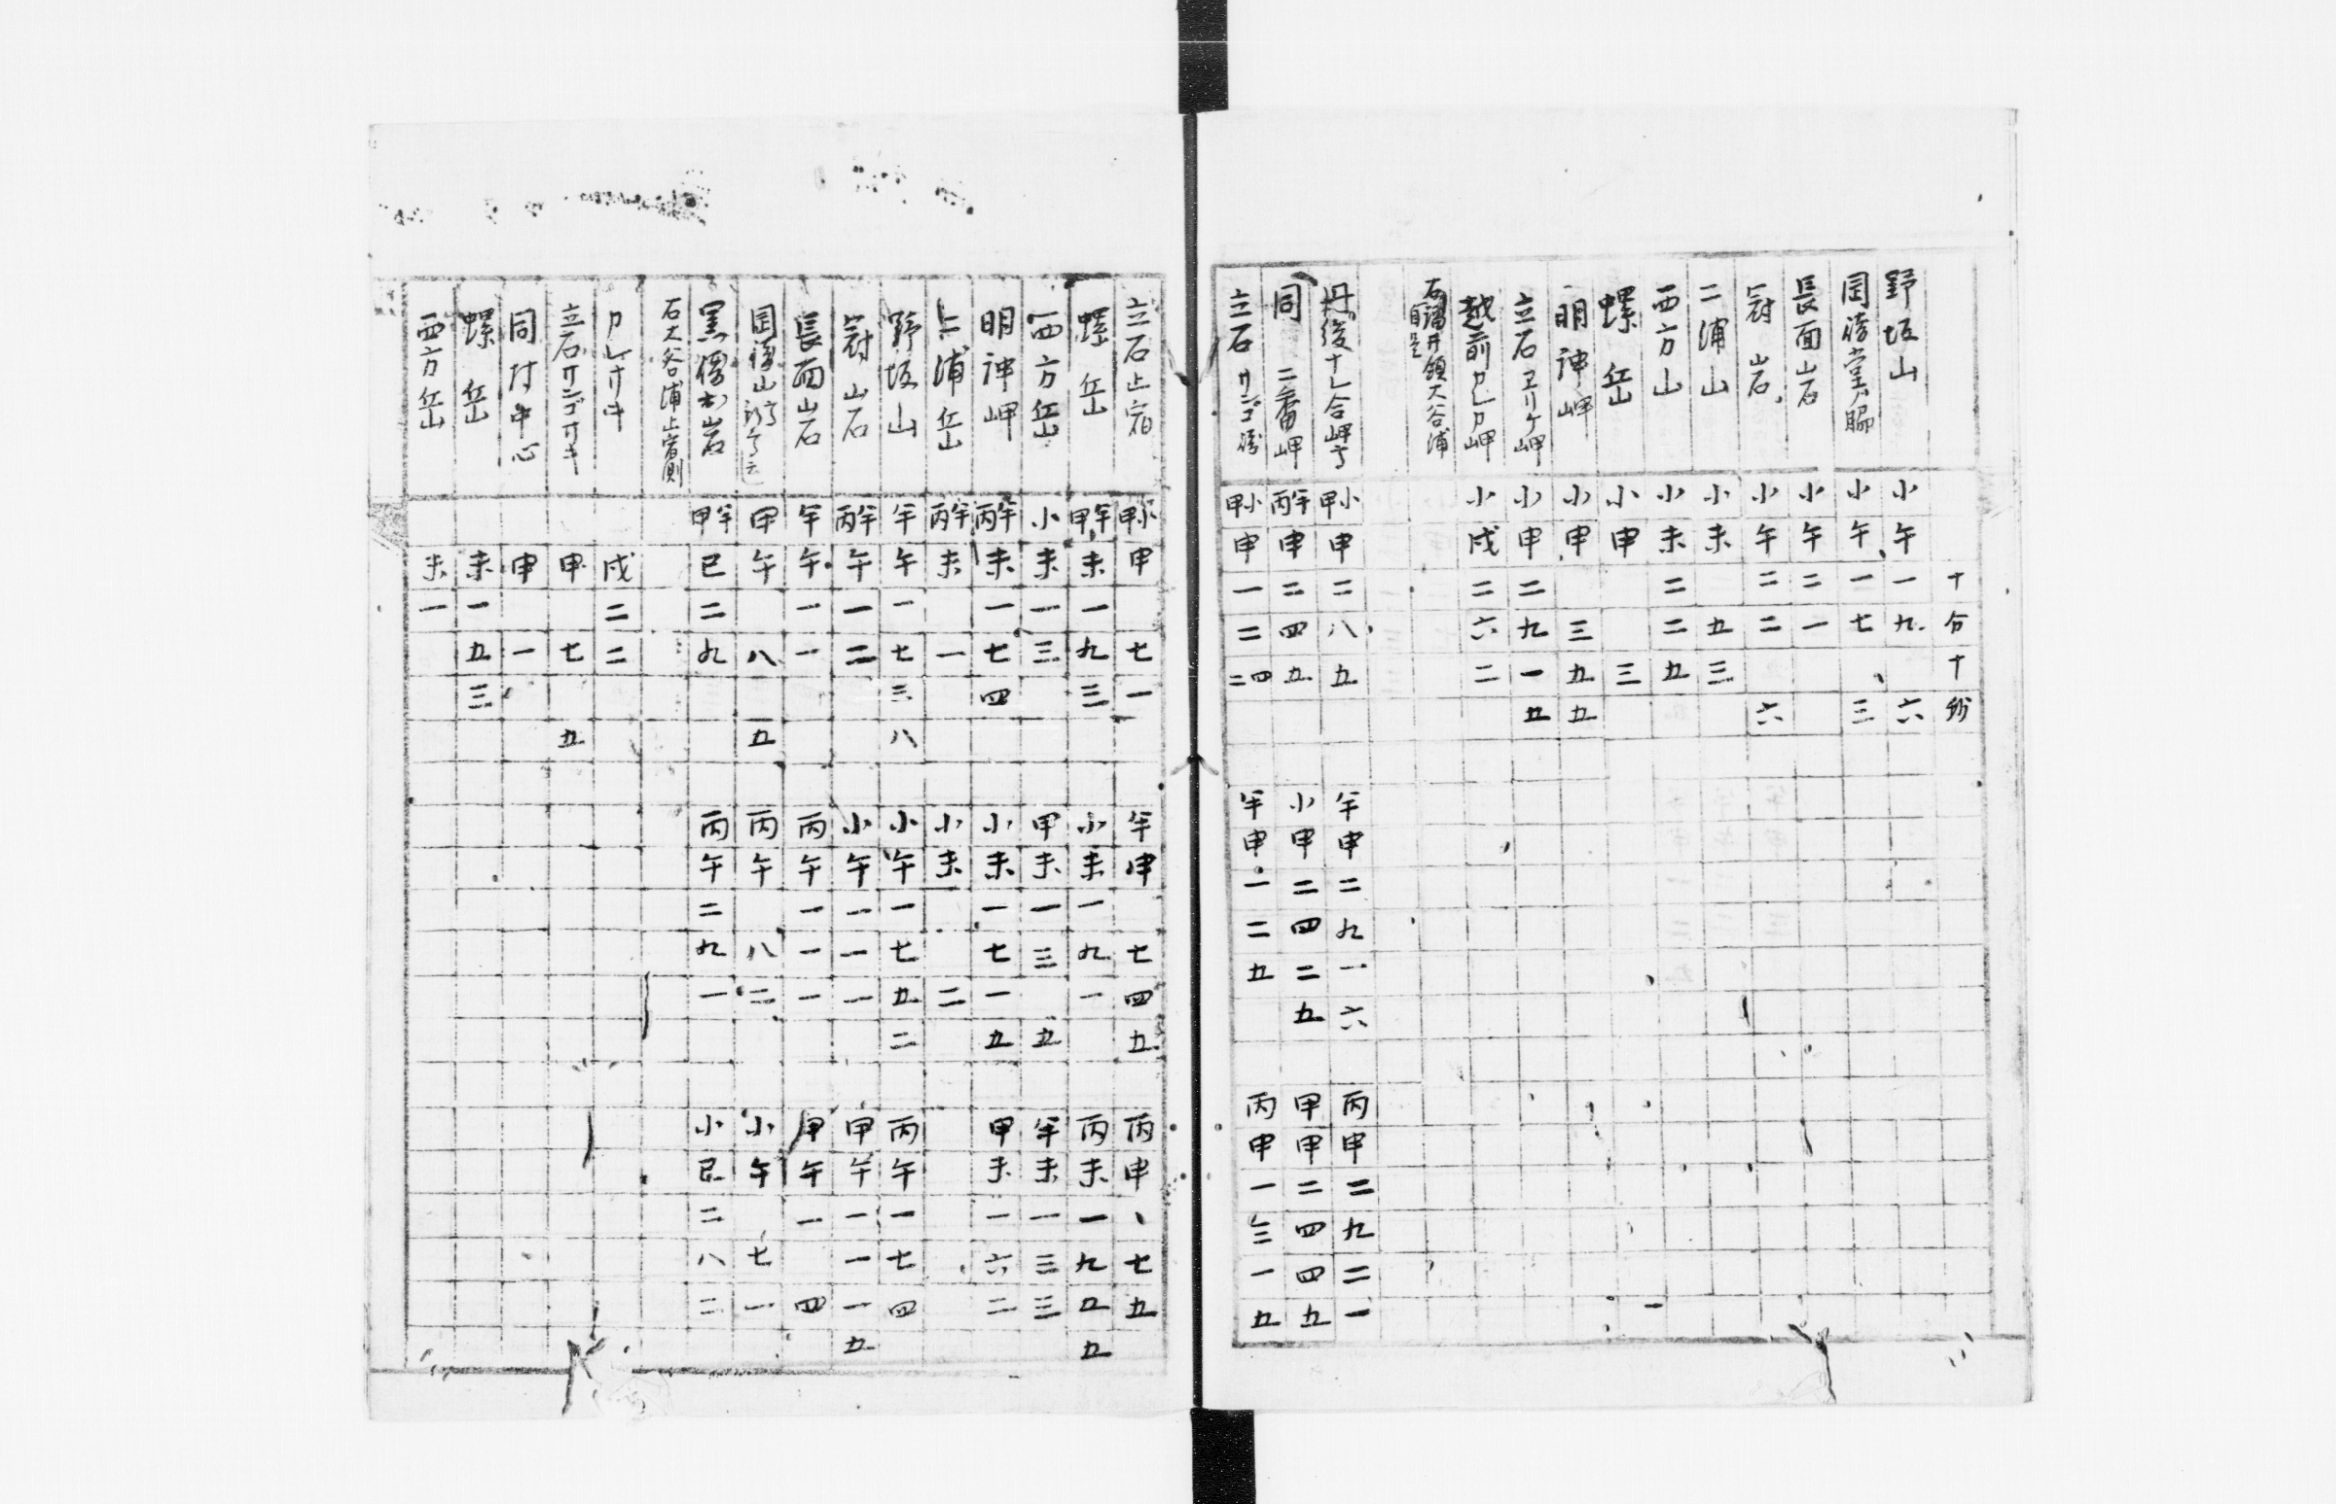 十分十秒
野坂山 小午一九 六
岡崎堂ノ脇 小午一七 三
長面山岩 小午二一
冠山岩 小午二二 六
二浦山 小未 五三
西方山 小未二二五
螺岳 小申 三
明神岬 小申 三五五
立石ヱリケ岬 小申二九一五
越前カレカ岬 小戌二六二
大谷浦
丹後ナレ合岬 甲小申二八五 半申二九一六 丙申二九二一
同 二番岬 丙半申二四五 小申二四二五 甲申二四四五
立石サンゴ崎 甲小申一二二四 半申一二五 丙申一三一五
立石止宿 甲小申 七一 半申 七四五 丙申、七五
螺岳 甲半未一九三 小未一九一 丙未一九五五
西方岳 小未一三 甲未一三 五 半未一三三
明神岬 丙半未一七四 小未一七一五 甲未一六二
二浦岳 丙半未 一 小未 二
野坂山 半午一七三八 小午一七五二 丙午一七四
冠山石 丙半午一二 小午一一一 甲午一一一五
長面山岩 半午一一 丙午一一一 甲午一 四
岡崎山 甲午 八 五 丙午 八二 小午 七一
黒崎出岩 甲半巳二九 丙午二九一 小巳二八二
石大谷浦止宿側
カレサキ 戌二二
立石サンゴサキ 申 七 五
同村中心 申 一
螺岳 未一五三
西方岳 未一